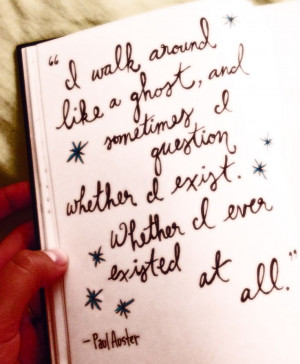 "I walk around
like a ghost, and
sometimes I
question
whether I exist.
Whether I ever
existed at all."
- Paul Auster